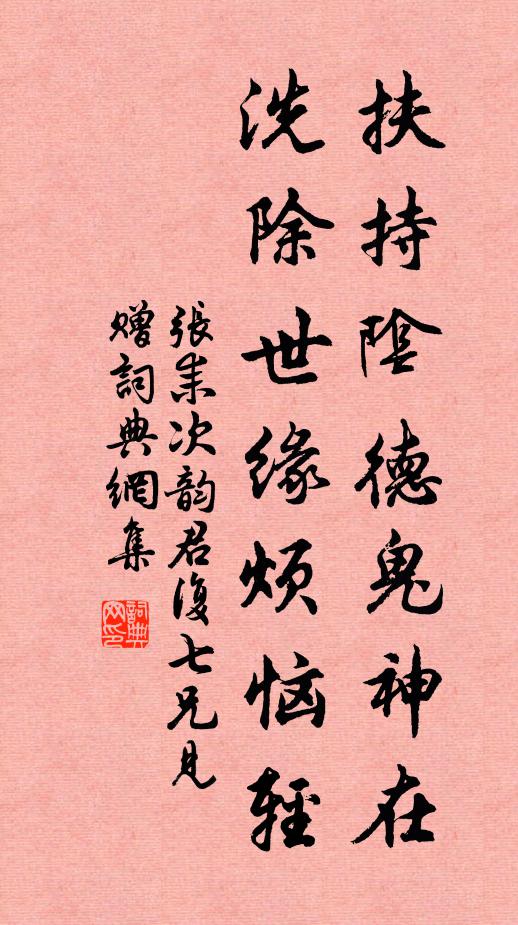 扶持陰德鬼神在
洗除世緣煩惱輕
張耒次韵君復七兄見
赠詞典網集
詞典網印